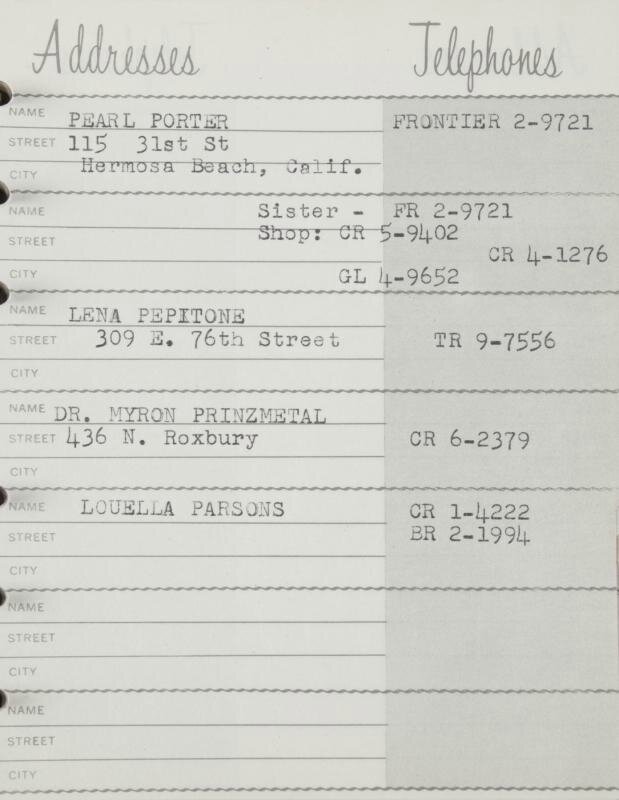 Addresses Telephones
NAME PEARL PORTER FRONTIER 2-9721
STREET 115 31st St
CITY Hermosa Beach, Calif.
NAME Sister - FR 2-9721
STREET Shop: CR 5-9402
CR 4-1276
CITY GL 4-9652
NAME LENA PEPITONE
STREET 309 E. 76th Street TR 9-7556
CITY
NAME DR. MYRON PRINZMETAL
STREET 436 N. Roxbury CR 6-2379
CITY
NAME LOUELLA PARSONS CR 1-4222
STREET BR 2-1994
CITY
NAME
STREET
CITY
NAME
STREET
CITY